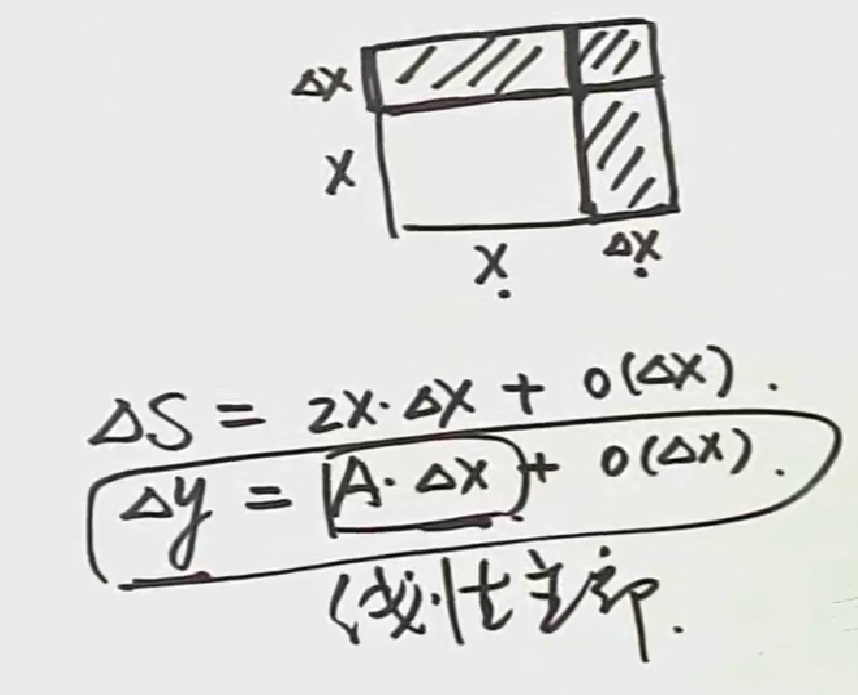 Δx
x
x Δx
ΔS = 2x·Δx + o(Δx).
Δy = A·Δx + o(Δx).
线性主部.